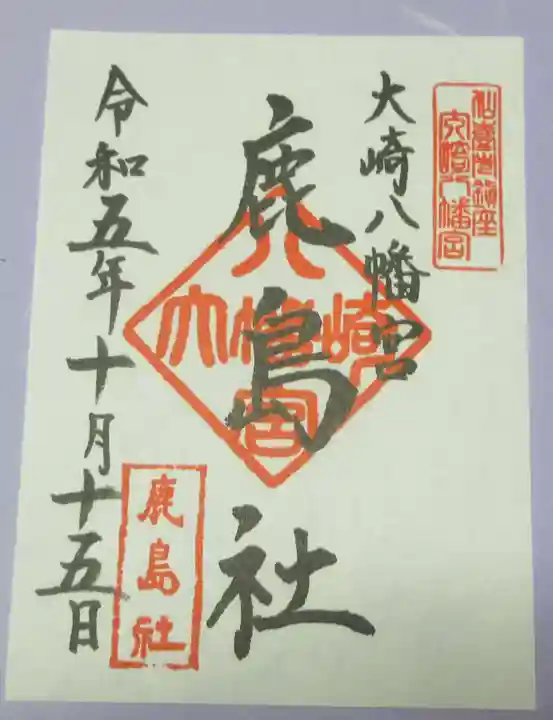 仙臺市鎮座
大崎八幡宮
大崎八幡宮
鹿島社
大崎八幡宮
鹿島社
令和五年十月十五日